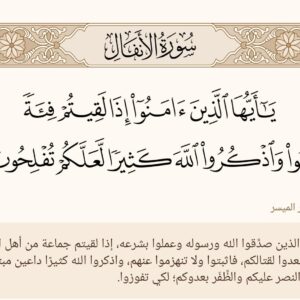 سُورَةُ الأَنفَالِ
يَـٰٓأَيُّهَا ٱلَّذِينَ ءَامَنُوٓا۟ إِذَا لَقِيتُمْ فِئَةً
وا۟ وَٱذْكُرُوا۟ ٱللَّهَ كَثِيرًا لَّعَلَّكُمْ تُفْلِحُون
ر الميسر
الذين صدَّقوا الله ورسوله وعملوا بشرعه، إذا لقيتم جماعة من أهل ا
عدوا لقتالكم، فاثبتوا ولا تنهزموا عنهم، واذكروا الله كثيرًا داعين مبت
النصر عليكم والظَّفَر بعدوكم؛ لكي تفوزوا.